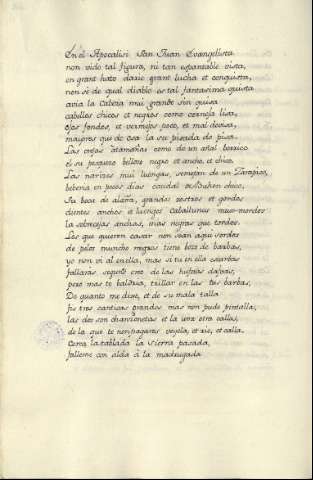 En el Apocalisi San Juan Evangelista
non vido tal figura, ni tan espantable vista,
en grant hato darie grant lucha et conquista,
non sé de qual diablo es tal fantasma quista
avia la Cabeza mui grande sin guisa
cabellos chicos et negros como corneja lisa,
ojos fondos, et vermejos poco, et mal devisa,
mayores que de osa la su pisada de pisa.
Las orejas tamañas como de un añal borrico
el su pesquezo bellozo negro et ancho, et chico.
Las narizes mui luengas, semejan de un Zarapico,
beberia en pocos dias caudal de Buhon chico,
Su boca de alaña, grandes rostros et gordos
dientes anchos et luengos Caballunos mux mordos
la sobrecejas anchas, mas negras que tordos
Los que quieren casar non sean aqui sordos
de pelos muncho negros tiene bozo de barbas,
yo non vi al en ella, mas si tu en ella escarbas
fallarás segunt creo de las
pero mas te valdria, trillar en las tus barbas,
De quanto me dixo, et de su mala talla
fis tres cantigas grandes mas non pude pintalla,
las dos son chanzonetas et la una otra callas,
de la que te non pagares veyela, et rie, et calla.
Cerca la tablada la sierra pasada,
falleme con alda á la madrugada